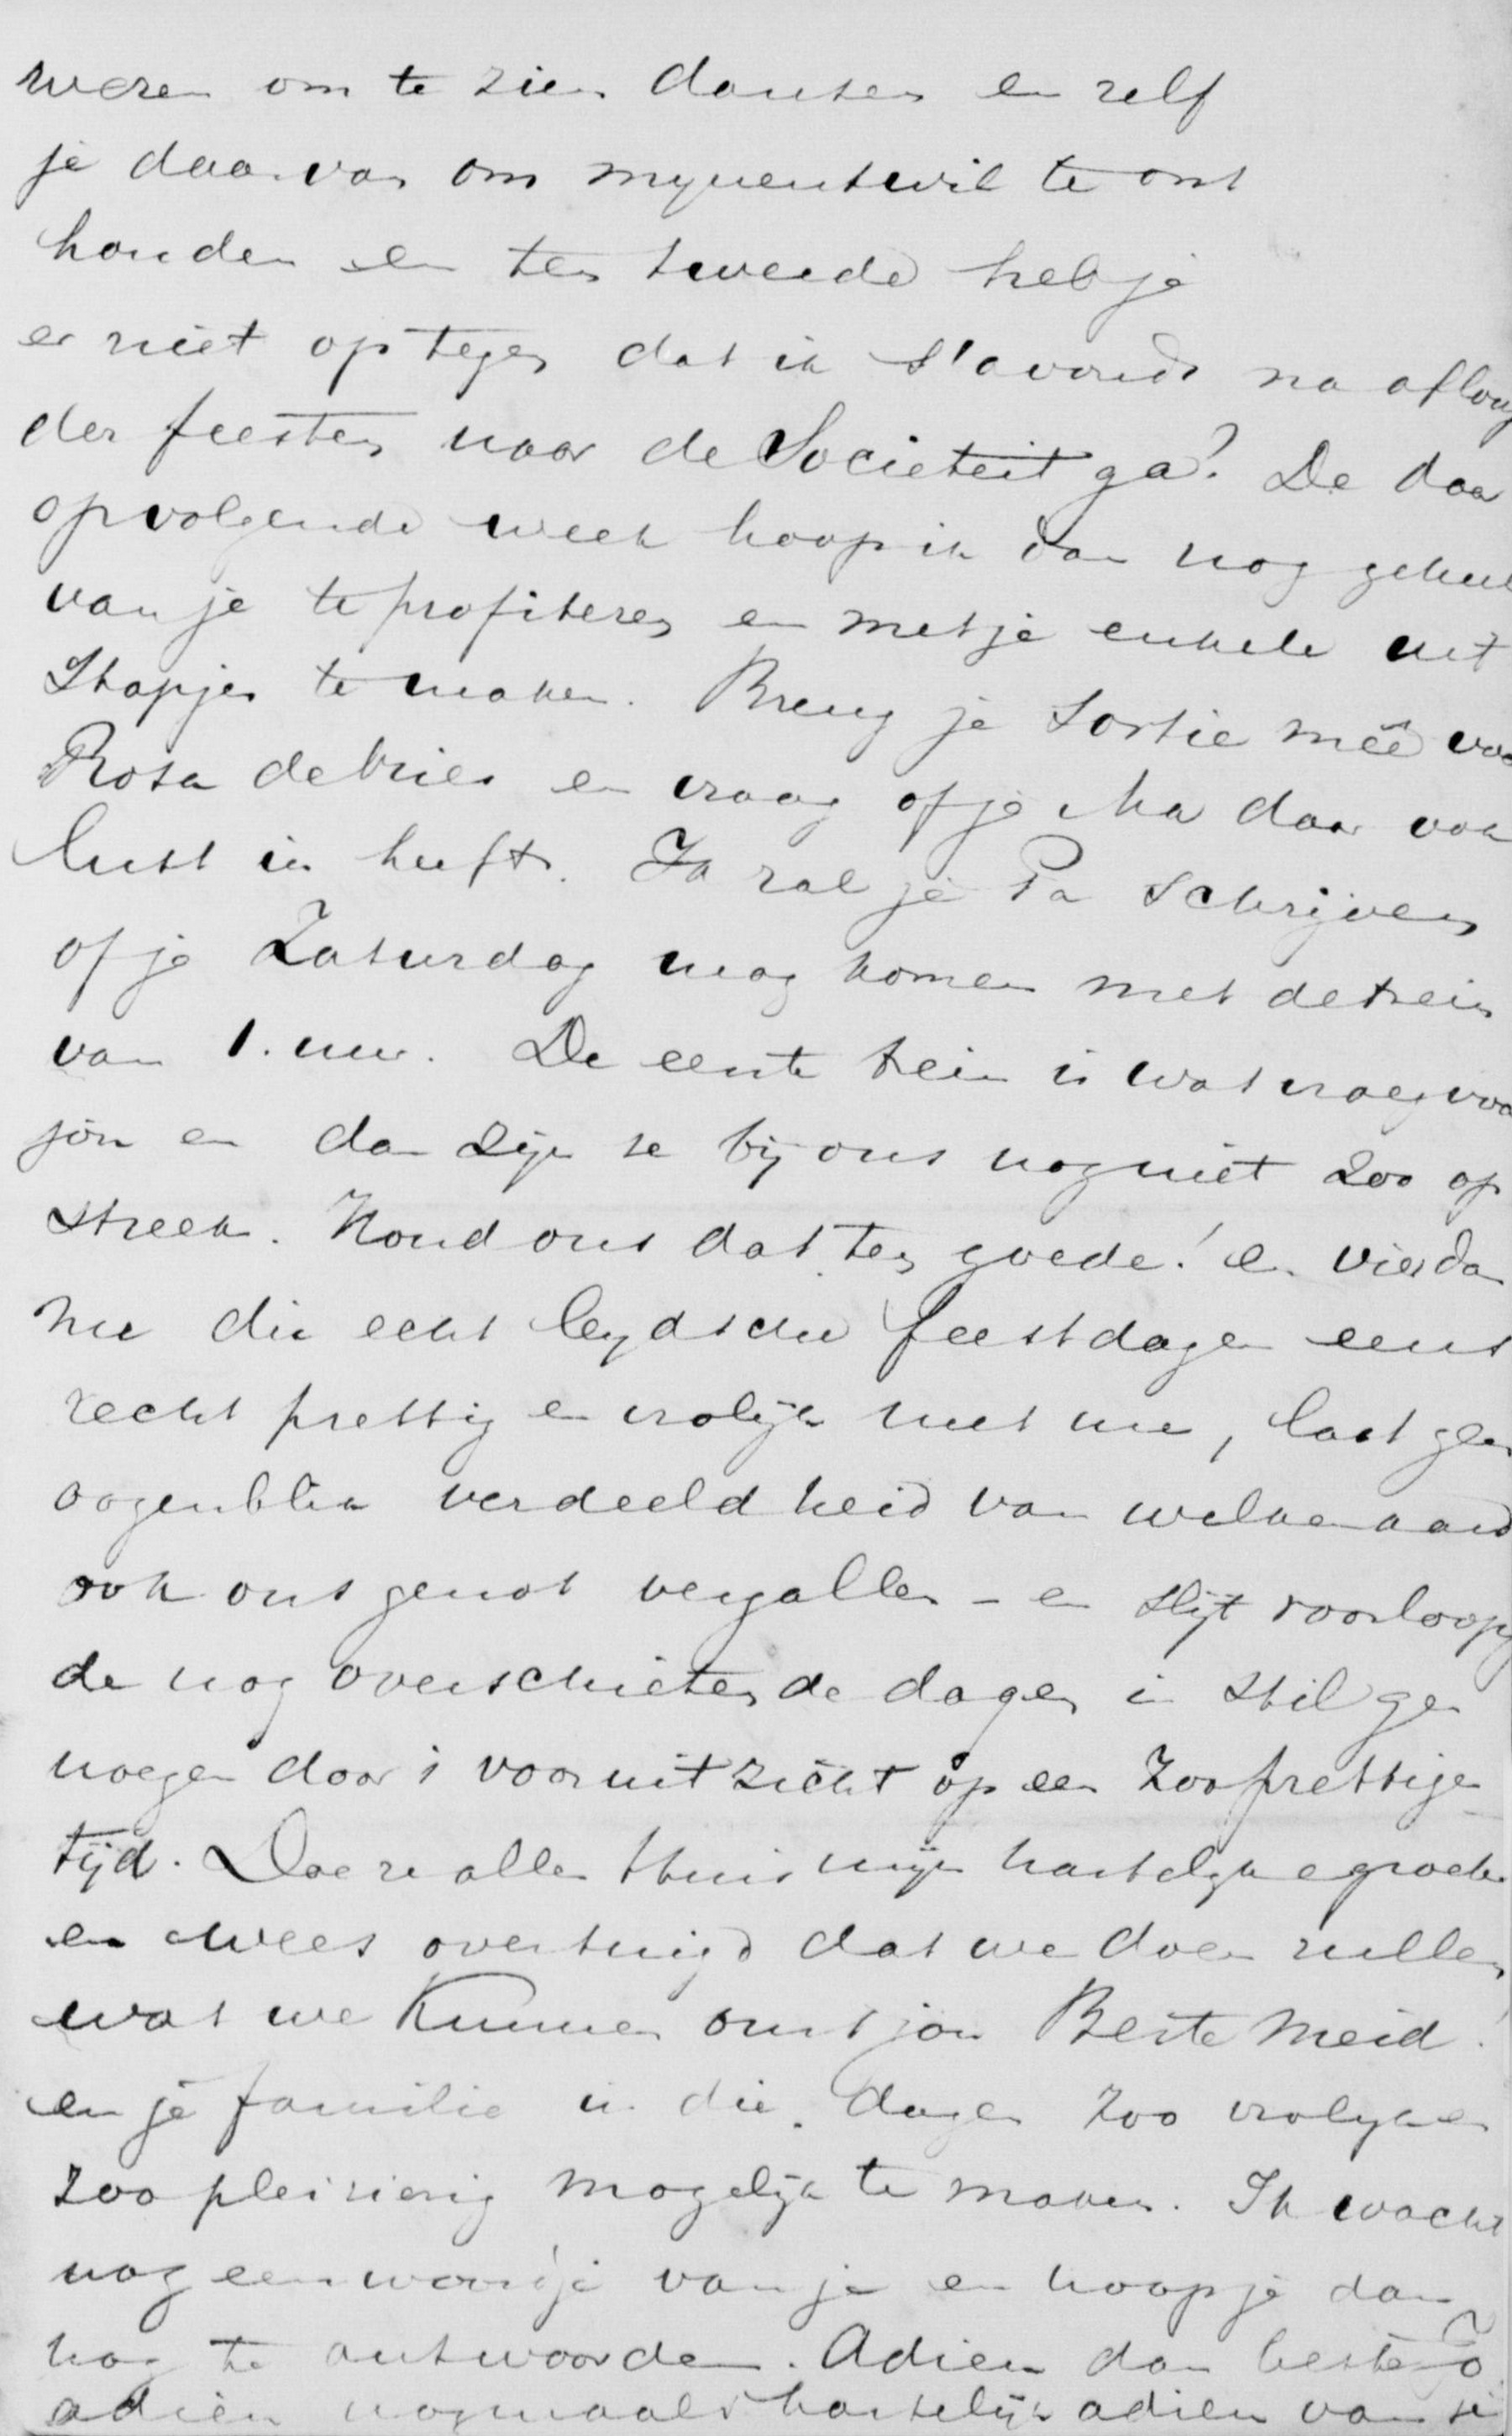 weren om te zien dansen en zelf
je daarvan om mynentwil te ont
houden en ten tweede heb je
er niet op tegen dat ik s'avonds na afloop
der feesten naar de Societeit ga? De daar
opvolgende week hoop ik dan nog geheel
van je te profiteren en met je enkele uit
stapjes te maken. Breng je sortie meê voor
Rosa de Vries en vraag of je Ma daar ook
lust in heeft. Ik zal je Pa schrijven
of je Zaturdag mag komen met de trein
van 1. uur. De eerste trein is wat vroeg voor
jou en dan zijn ze bij ons nog niet zoo op
streek. Houd ons dat ten goede! en vier dan
nu die echt leydsche feestdagen eens
recht prettig en vrolijk met me, laat geen
oogenblik verdeeldheid van welken aard
ook ons genot vergallen - en slijt voorloopig
de nog overschietende dagen in stil ge
noegen door 't vooruitzicht op een zoo prettigen
tijd. Doe ze allen thuis mijn hartelijke groeten
en wees overtuigd dat we doen zullen
wat we kunnen om 't jou Beste Meid!
en je familie in die dagen zoo vrolyk en
zoo pleizierig mogelijk te maken. Ik wacht
nog een woordje van je en hoop je dan
nog te antwoorden. Adieu dan beste Jo
adieu nogmaals hartelijk adieu van je